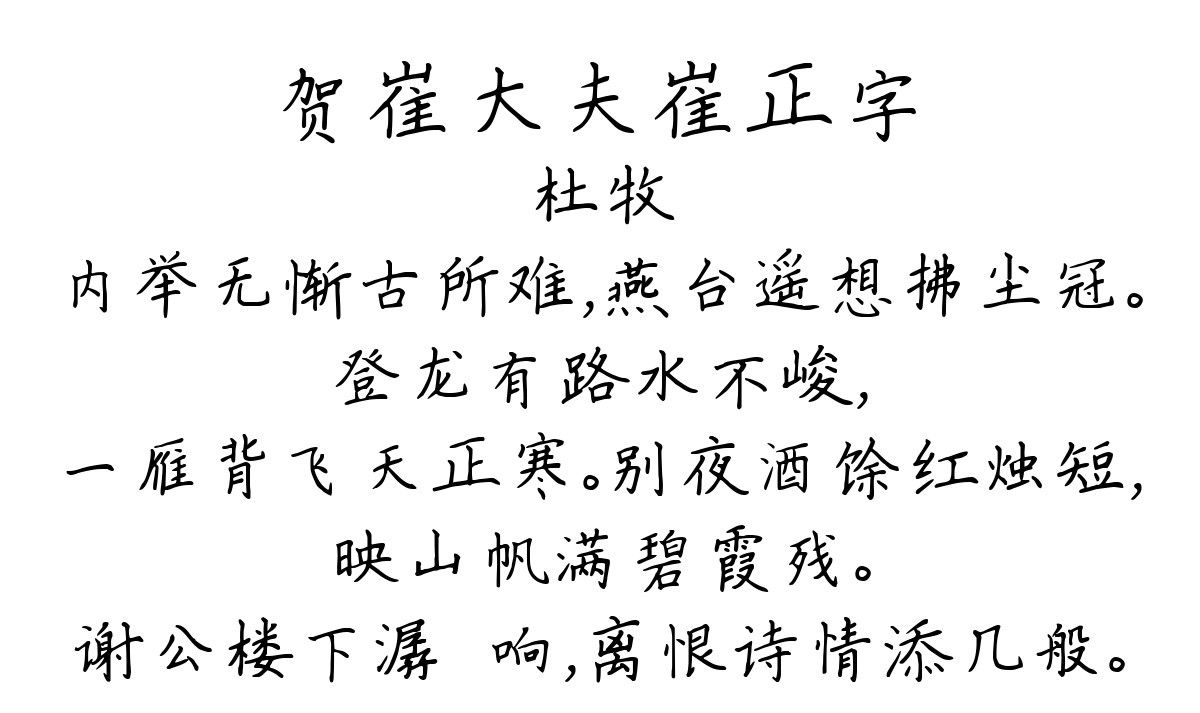 贺崔大夫崔正字
杜牧
内举无惭古所难,燕台遥想拂尘冠。
登龙有路水不峻,
一雁背飞天正寒。别夜酒馀红烛短,
映山帆满碧霞残。
谢公楼下潺 响,离恨诗情添几般。